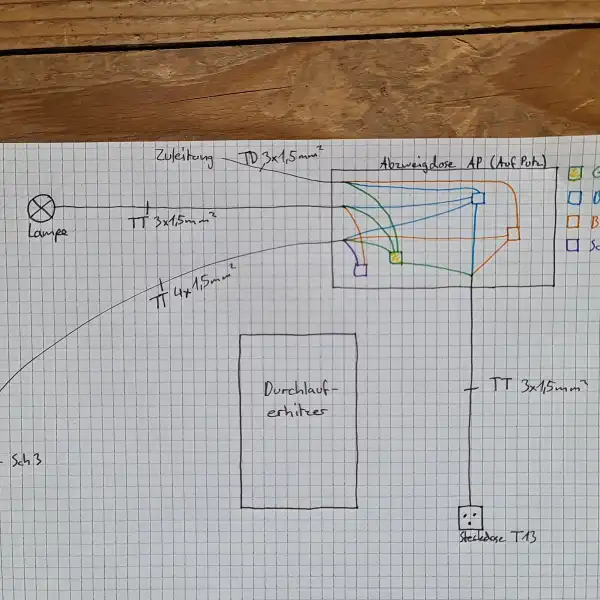 Zuleitung TD 3x1,5mm²
Abzweigdose AP (Auf Putz)
G
B
Lampe
TT 3x1,5mm²
TT 4x1,5mm²
Durchlauf-
erhitzer
TT 3x1,5mm²
Sch3
Steckdose T13